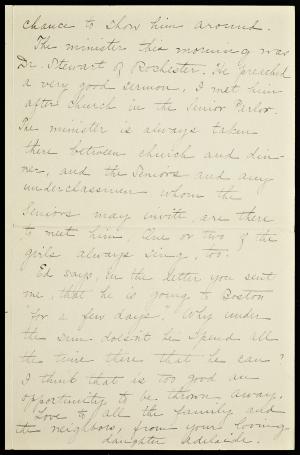 chance to show him around.
The minister this morning was
Dr. Stewart of Rochester. He preached
a very good sermon, I met him
after church in the Senior Parlor.
The minister is always taken
there between church and din-
ner, and the Seniors and any
underclassmen whom the
Seniors may invite, are there
to meet him. One or two of the
girls always sing, too.
Ed says, in the letter you sent
me, that he is going to Boston
"for a few days". Why under
the sun doesn't he spend all
the time there that he can?
I think that is too good an
opportunity to be thrown away.
Love to all the family and
the neighbors, from your loving
daughter Adelaide.